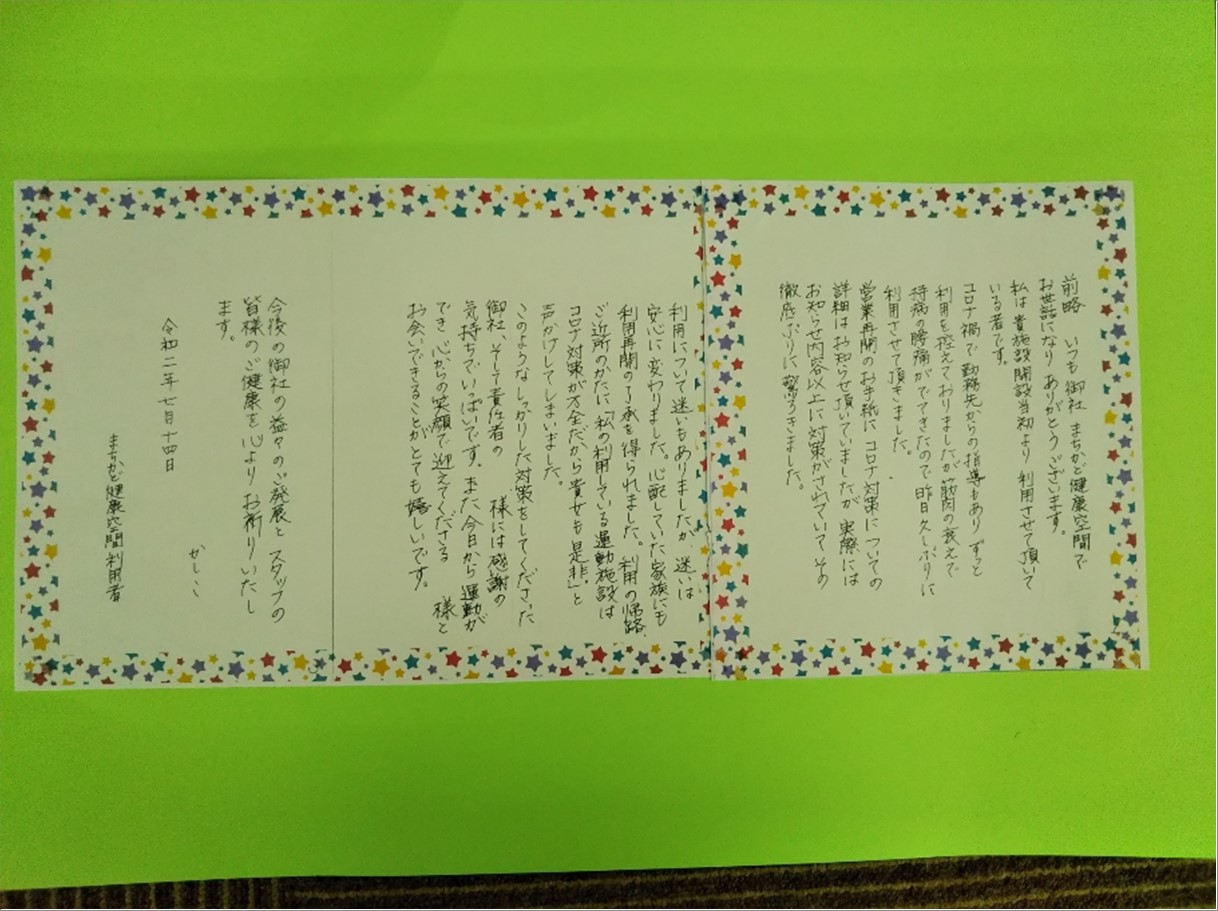 前略 いつも御社 まちかど健康空間で
お世話になり ありがとうございます。
私は貴施設開設当初より 利用させて頂いて
いる者です。
コロナ禍で勤務先からの指導もあり ずっと
利用を控えておりましたが筋肉の衰えで
持病の腰痛がでてきたので昨日久しぶりに
利用させて頂きました。
営業再開のお手紙に コロナ対策についての
詳細はお知らせ頂いていましたが 実際には
お知らせ内容以上に 対策がされていて その
徹底ぶりに驚ろきました。
利用について迷いもありましたが 迷いは
安心に変わりました。心配していた家族にも
利用再開の了承を得られました。利用の帰路、
ご近所のかたに「私の利用している運動施設は
コロナ対策が万全だから貴女も是非。」と
声がけしてしまいました。
このようなしっかりした対策をしてくださった
御社、そして責任者の 様には感謝の
気持ちでいっぱいです。また今日から運動が
でき、心からの笑顔で迎えてくださる 様と
お会いできることがとても嬉しいです。
今後の御社の益々のご発展と スタッフの
皆様のご健康を心より お祈りいたし
ます。
かしこ
令和二年七月十四日
まちかど健康空間利用者